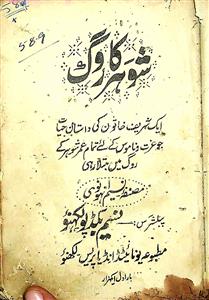 589
شوہر کا روگ
ایک شریف خاتون کی داستان حیات
جو عزت و ناموس کے لئے تمام عمر شوہر کے
روگ میں مبتلا رہی
مصنفہ نسیم انہونوی
پبلشرس
نسیم بکڈپو لکھنؤ
مطبوعہ یونائیٹڈ انڈیا پریس لکھنؤ
بار اول ہزار